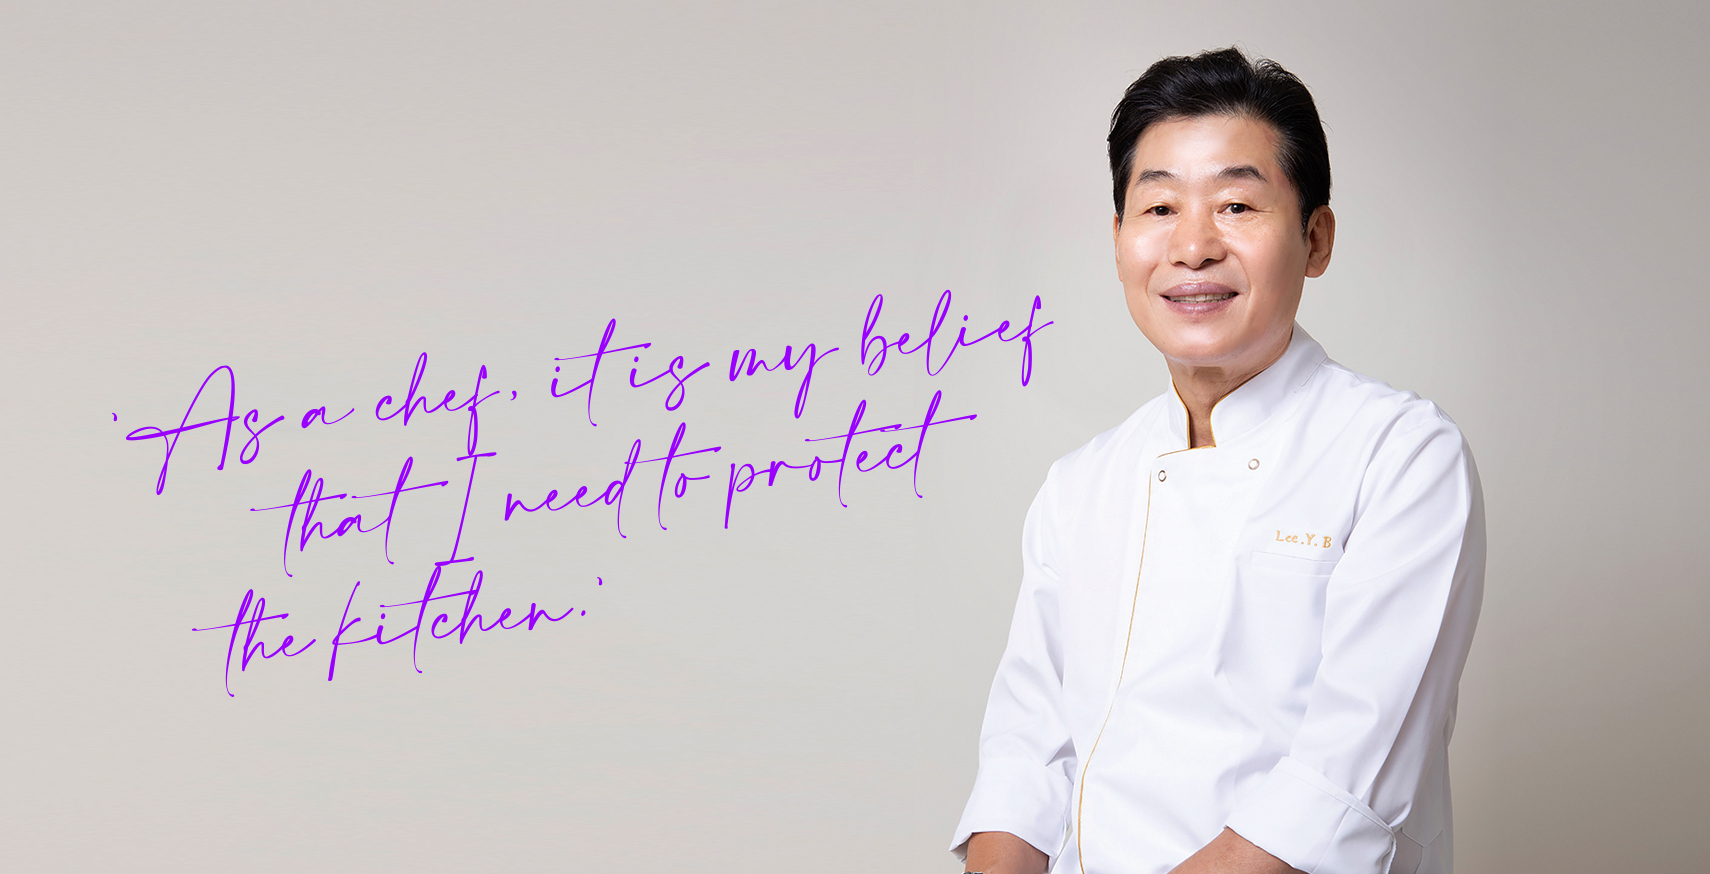 'As a chef, it is my belief
that I need to protect
the kitchen.'
Lee.Y.B